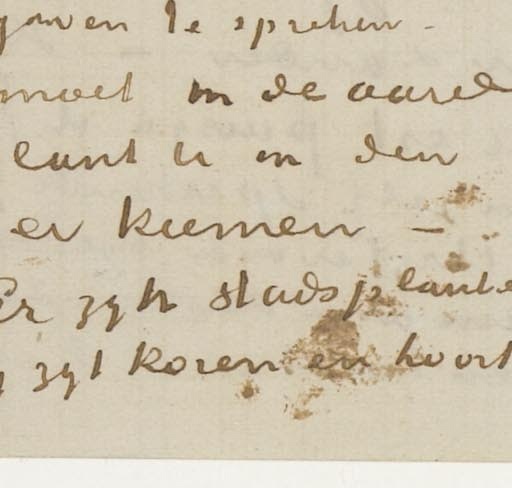 gaven te spreken –
moet in de aard
lant u in den
er kiemen –
Er zijn stadsplante
zijt koren en hoort